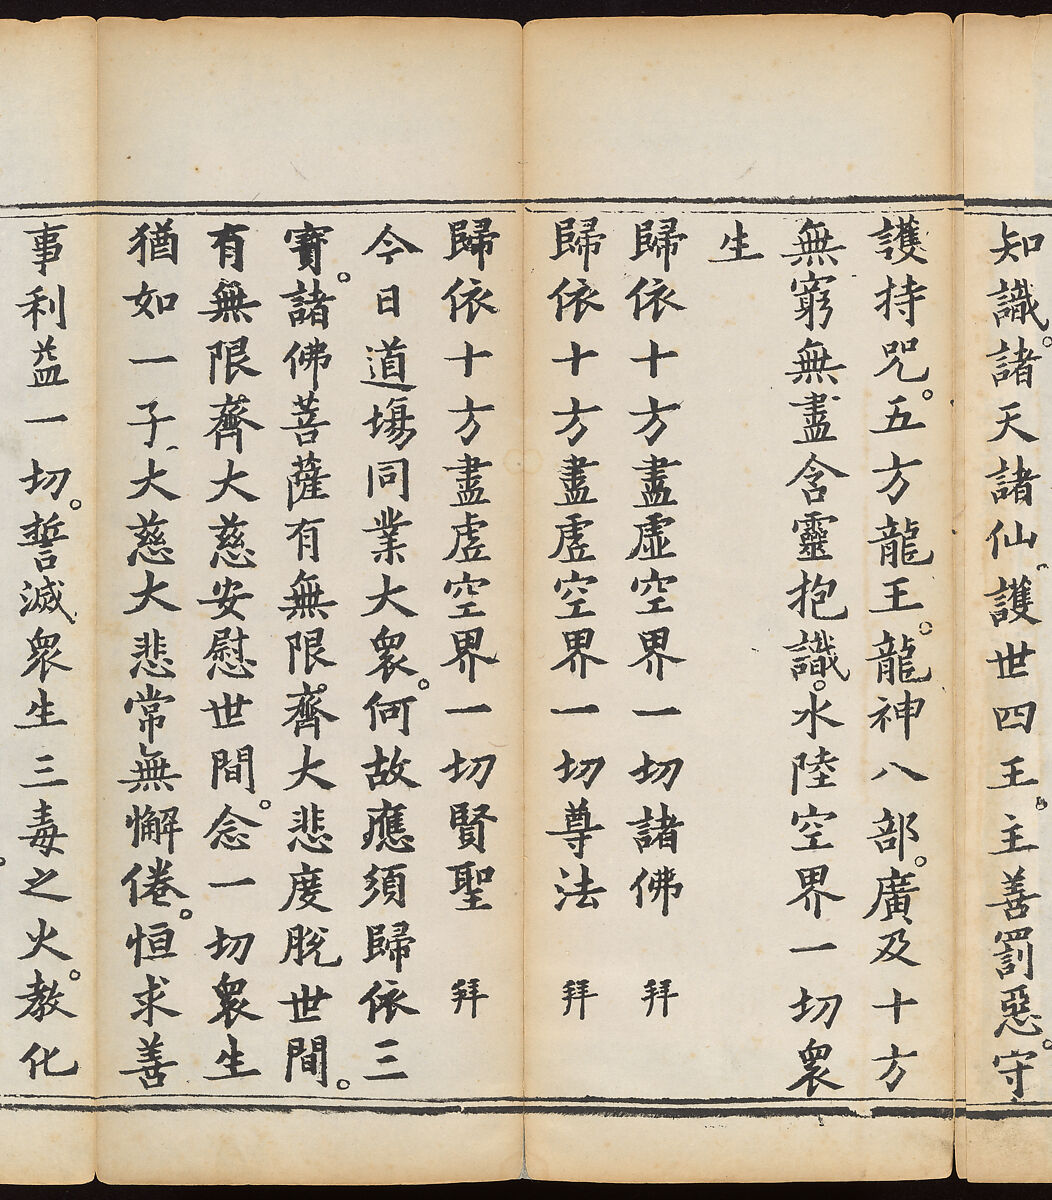 知識。諸天諸仙。護世四王。主善罰惡。守
護持咒。五方龍王。龍神八部。廣及十方
無窮無盡含靈抱識。水陸空界一切眾
生
歸依十方盡虛空界一切諸佛 拜
歸依十方盡虛空界一切尊法 拜
歸依十方盡虛空界一切賢聖 拜
今日道場同業大眾。何故應須歸依三
寶。諸佛菩薩有無限齊大悲度脫世間。
有無限齊大慈安慰世間。念一切眾生
猶如一子、大慈大悲常無懈倦。恒求善
事利益一切。誓滅眾生三毒之火。教化